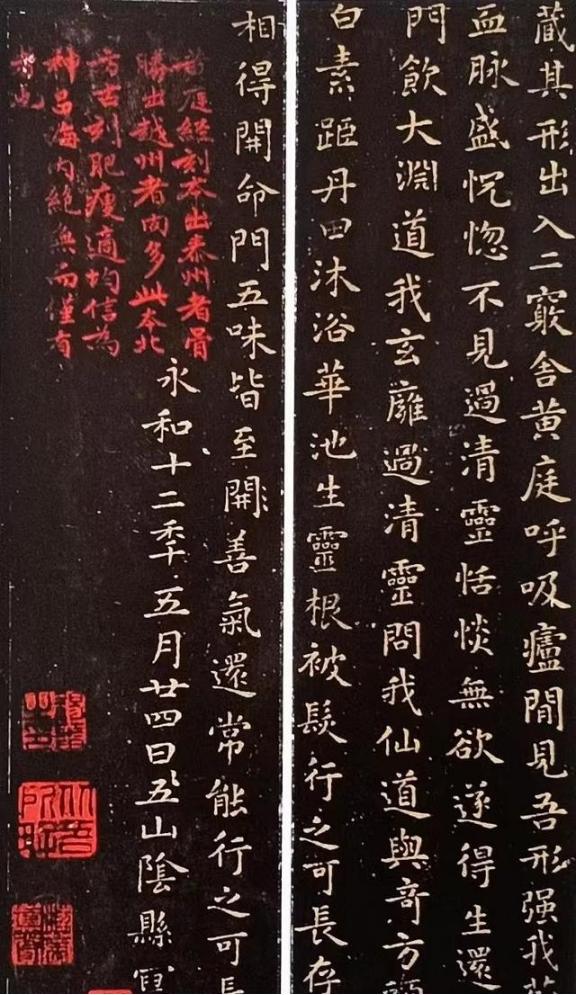 藏其形出入二竅舍黄庭呼吸廬閒見吾形强我
血脉盛怳惚不見過清靈恬惔無欲遂得生還
門飲大淵道我玄廱過清靈問我仙道與奇方
白素距丹田沐浴華池生靈根被髮行之可長存
相得開命門五味皆至開善氣還常能行之可長
永和十二年五月廿四日五山陰縣寫
黄庭經刻本出秦州者骨
勝出越州者肉多此本北
方古刻肥瘦適均信為
神品海内絶無而僅有
者也